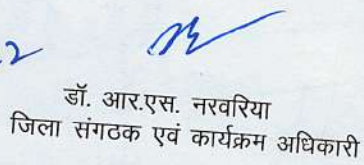 डॉ. आर.एस. नरवरिया
जिला संगठक एवं कार्यक्रम अधिकारी